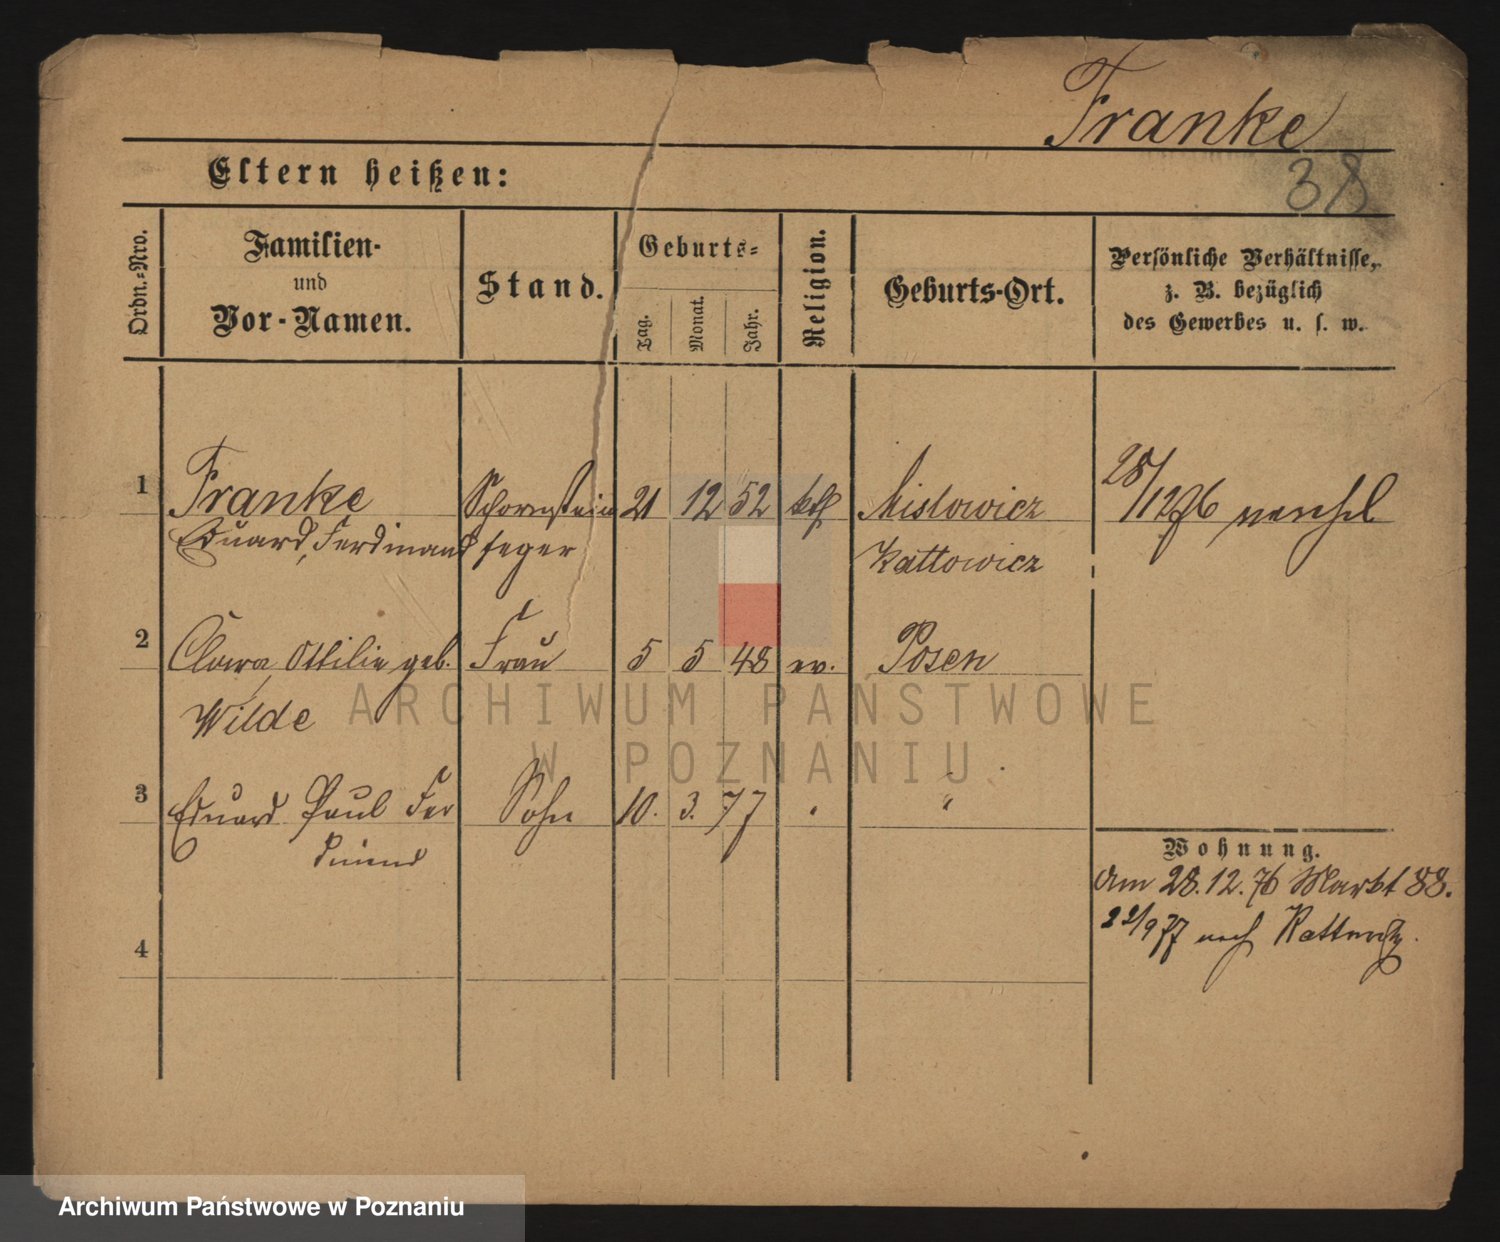 Franke
38
Eltern heißen:
Ordn.-Nro.
Familien-
und
Vor-Namen.
Stand.
Geburts-
Tag.
Monat.
Jahr.
Religion.
Geburts-Ort.
Persönliche Verhältnisse,
z. B. bezüglich
des Gewerbes u. s. w.
1 Franke Schornstein 21 12 52 kth Mislowicz 28/12 76
Eduard, Ferdinand feger Kattowicz
2 Clara, Ottilie geb. Frau 5 5 48 ev. Posen
Wilde
3 Eduard Paul Fer Sohn 10. 3. 77 " "
dinand
Wohnung.
Am 28.12.76 Markt 88.
22/9 77 nach Kattowitz.
4
ARCHIWUM PAŃSTWOWE
W POZNANIU
Archiwum Państwowe w Poznaniu